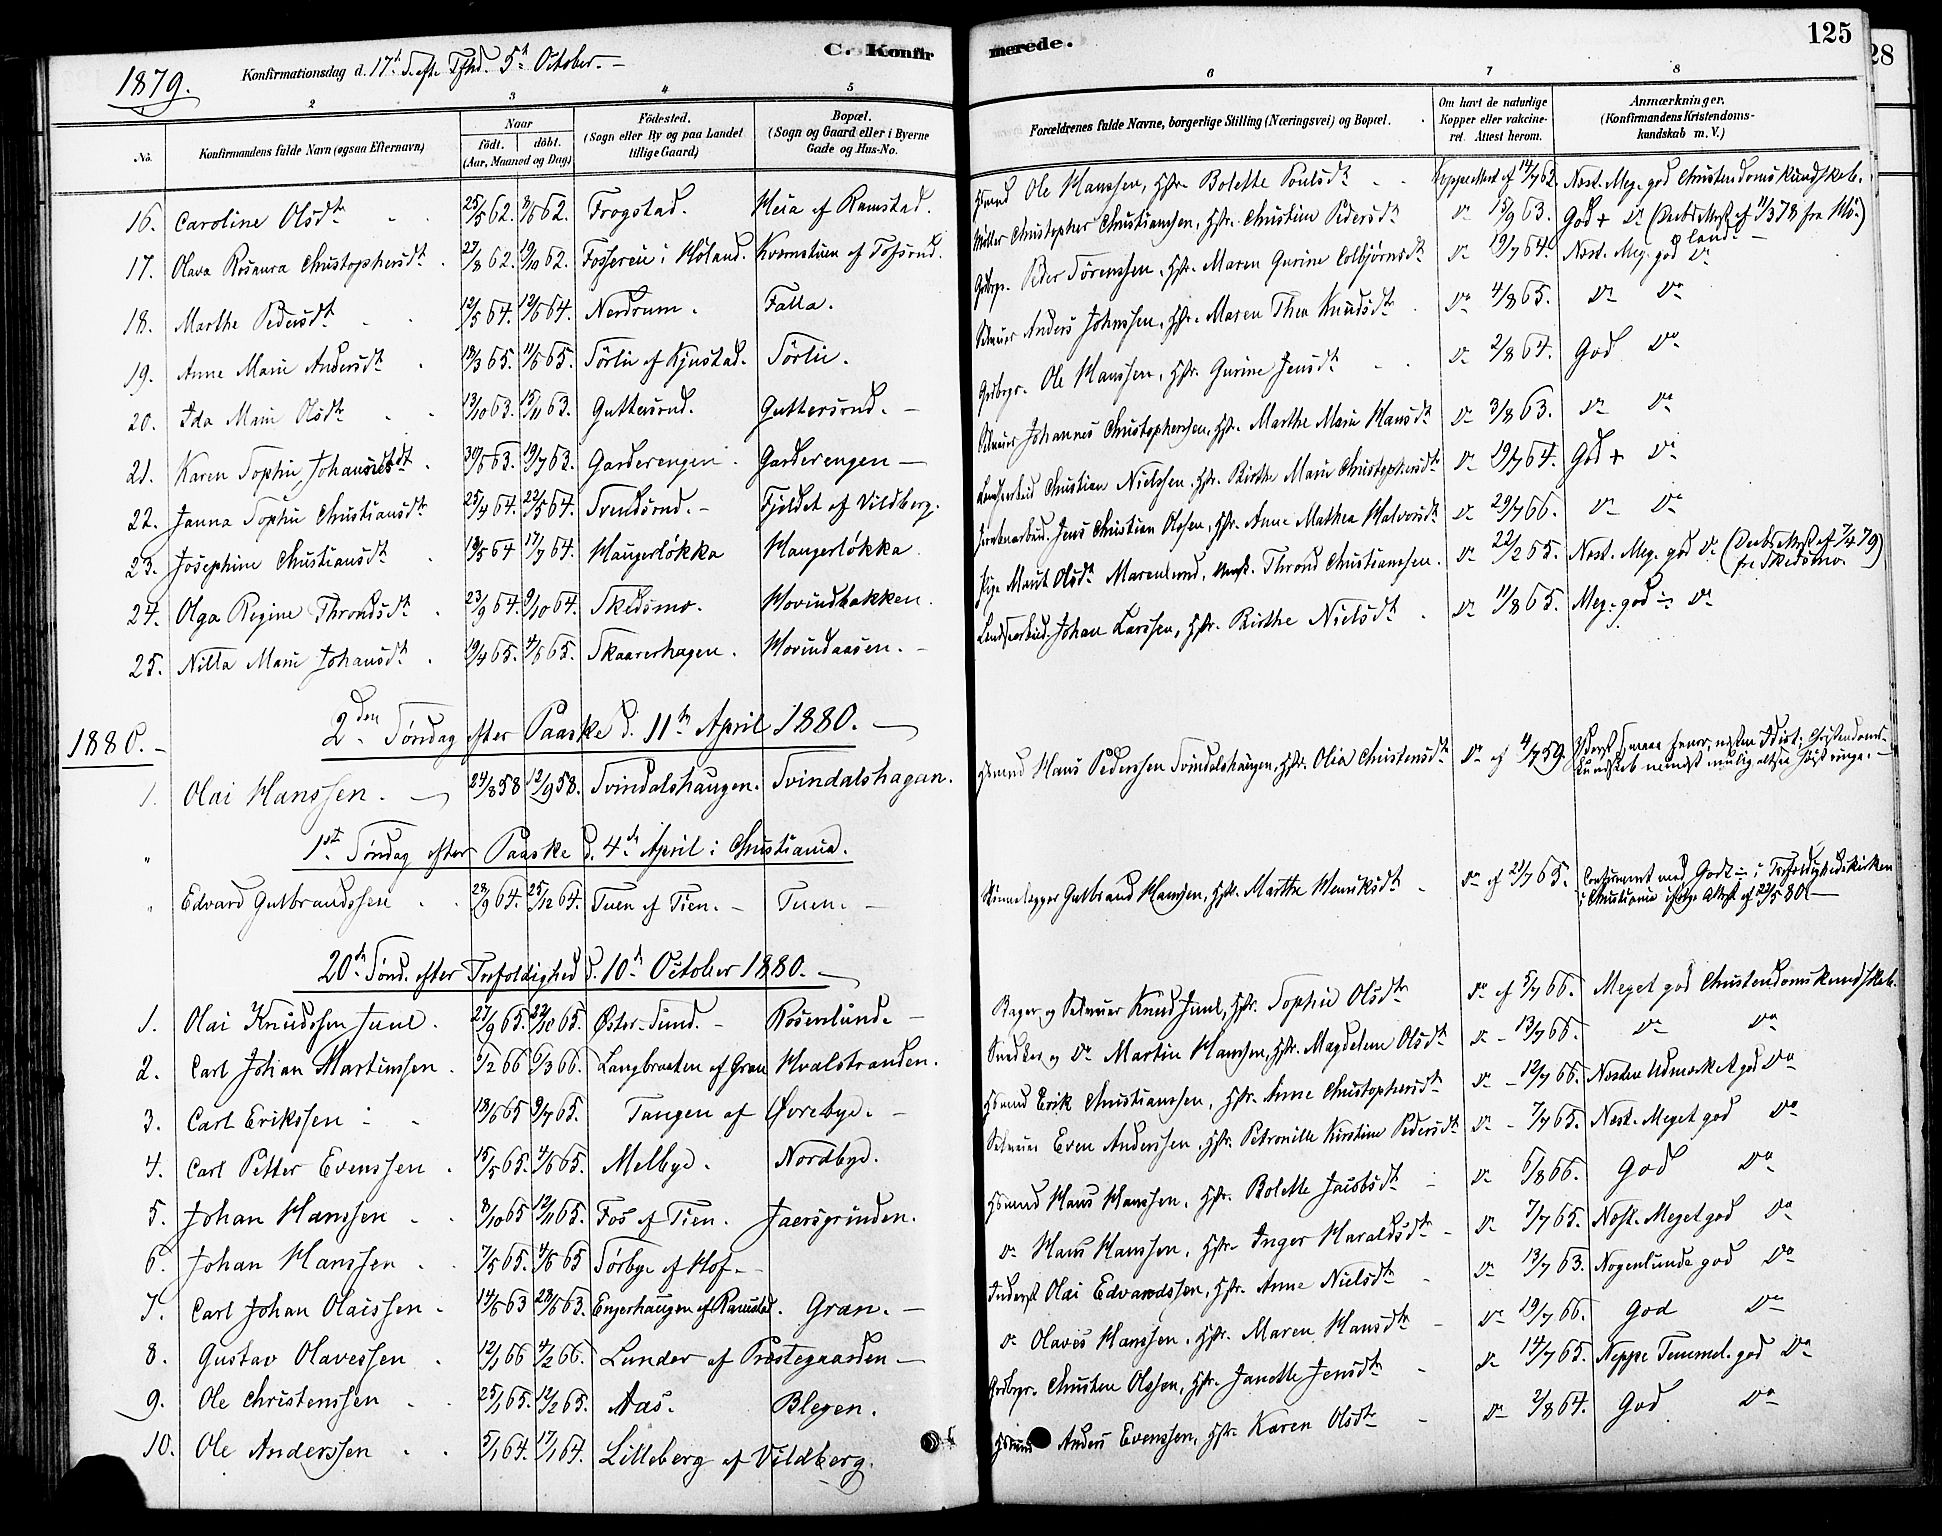 C. Konfir merede. 125
28
1879. Konfirmationsdag d. 17de S. efter Trfhd. 5te October.
2 3 4 5 6 7 8
No. Konfirmandens fulde Navn (ogsaa Efternavn) Naar født. døbt. (Aar, Maaned og Dag) Fødested. (Sogn eller By og paa Landet tillige Gaard) Bopæl. (Sogn og Gaard eller i Byerne Gade og Hus-No. Forældrenes fulde Navne, borgerlige Stilling (Næringsvei) og Bopæl. Om havt de naturlige Kopper eller vakcineret. Attest herom. Anmærkninger. (Konfirmandens Kristendomskundskab m. V.)
16. Caroline Olsdtr 25/5 62. 8/6 62. Frogstad. Heia af Ramstad. Hsmd Ole Hanssen, Hstr. Bolette Poulsdtr Koppeattest af 14/7 62. Næst. Meg. god Christendomskundskab.
17. Olava Rosaura Christophersdtr 27/8 62. 19/10 62. Fosserein i Høland. Kvernstuen af Tofsrud. Møller Christopher Christianssen, Hstr. Christine Pedersdtr Do 15/9 63. God + Do (Daabsattest af 11/3 78 fra Høland)
18. Marthe Pedersdtr 12/5 64. 12/6 64. Nerdrum. Falla. Gdbrgr. Peder Sørenssen, Hstr. Maren Gurine Colbjørnsdtr Do 19/7 64. Næst. Meg. god Do
19. Anne Marie Andersdtr 18/3 65. 11/6 65. Sørlie af Kjustad. Sørlie. Selveier Anders Johnssen, Hstr. Maren Thea Knudsdtr Do 4/8 65. Do Do
20. Ida Marie Olsdtr 13/10 63. 15/11 63. Guttersrud. Guttersrud. Gdbrgr. Ole Hanssen, Hstr. Gurine Jensdtr Do 2/8 64. God Do
21. Karen Sophie Johannesdtr 30/5 63. 19/7 63. Garderengen. Garderengen Selveier Johannes Christophersen, Hstr. Marthe Marie Hansdtr Do 3/8 63. Do Do
22. Janna Sophie Christiansdtr 25/4 64. 22/5 64. Svendsrud. Fjeldet af Vildberg. Christian Nielssen, Hstr. Birthe Marie Christophersdtr Do 19/7 64. God + Do
23. Josephine Christiansdtr 18/5 64 17/7 64. Haugerløkka Haugerløkka Jens Christian Olssen, Hstr. Anne Mathea Halvorsdtr Do 29/7 66. Do Do
24. Olga Regine Throndsdtr 23/9 64. 9/10 64. Skedsmo. Hovindbakken. Pige Marit Olsdtr Marenlund, Thrond Christianssen. Do 22/2 65. Næst. Meg. god Do (Daabsattest af 7/4 79) fr. Skedsmo.
25. Nilla Marie Johansdtr 19/4 65. 4/6 65. Skaarerhagen. Hovindaasen. Johan Larssen, Hstr. Birthe Nielsdtr Do 11/8 65. Meg. god ÷ Do
1880. 2den Søndag efter Paaske d. 11te April 1880.
1. Olai Hanssen. 24/8 58 12/9 58. Svindalshaugen. Svindalshagan. Hsmd Hans Pederssen Svindalshaugen, Hstr. Olia Christensdtr Do af 4/7 59. Yderst Idiot; Christendomskundskab mindst mulig altsaa høist ringe.
" 1ste Søndag efter Paaske d. 4de April i Christiania.
" Edvard Gulbrandssen 28/9 64. 25/12 64. Tuen af Tien. Tuen. Gulbrand Hanssen, Hstr. Marthe Henriksdtr Do af 21/7 65. Confirmeret med Godt ÷ i Trefoldighedskirken i Christiania ifølge Attest af 22/5 80.
20de Sønd. efter Trefoldighed d. 10de October 1880.
1. Olai Knudssen Juul. 27/9 65. 22/10 65. Øster-Sund. Rosenlund. Bager og Selveier Knud Juul, Hstr. Sophie Olsdtr Do af 5/7 66. Meget god Christendomskundskab.
2. Carl Johan Martinssen. 6/2 66 6/3 66. Langbraaten af Gran Hvalstranden. Snedker og Do Martin Hanssen, Hstr. Magdelene Olsdtr Do 13/7 66. Do Do
3. Carl Erikssen 18/6 65 9/7 65. Tangen af Øvrebye. Hsmd Erik Christianssen, Hstr. Anne Christophersdtr Do 12/7 66. Næsten Udmærket god Do
4. Carl Petter Evenssen 15/5 65. 4/6 65. Melbye. Nordbye. Selveier Even Anderssen, Hstr. Petronille Kirstine Pedersdtr Do 7/7 65. Næst. Meget god Do
5. Johan Hanssen 8/10 65 12/11 65. Fos af Tien. Jaersgrinden. Hsmd Hans Hanssen, Hstr. Bolette Jacobsdtr Do 6/8 66. God Do
6. Johan Hanssen 7/5 65. 4/6 65 Sørbye af Hof. Do Hans Hanssen, Hstr. Inger Haraldsdtr Do 7/7 65. Næst. Meget god Do
7. Carl Johan Olaissen 14/5 63 28/6 63. Engerhaugen af Ramstad. Gran. Inderst Olai Edvardssen, Hstr. Anne Nielsdtr Do 13/7 63. Nogenlunde god Do
8. Gustav Olavessen 12/1 66 4/2 66. Lunder af Prestegaarden Do Olaves Hanssen, Hstr. Maren Hansdtr Do 19/7 66. God Do
9. Ole Christenssen 25/1 65. 12/2 65. Aas. Blegen. Gdbrgr. Christen Olssen, Hstr. Janette Jensdtr Do 14/7 65. Neppe Temmel. god Do
10. Ole Anderssen 5/1 64. 17/1 64. Lilleberg af Vildberg. Hsmd Anders Evenssen, Hstr. Karen Olsdtr Do 2/8 64. God Do